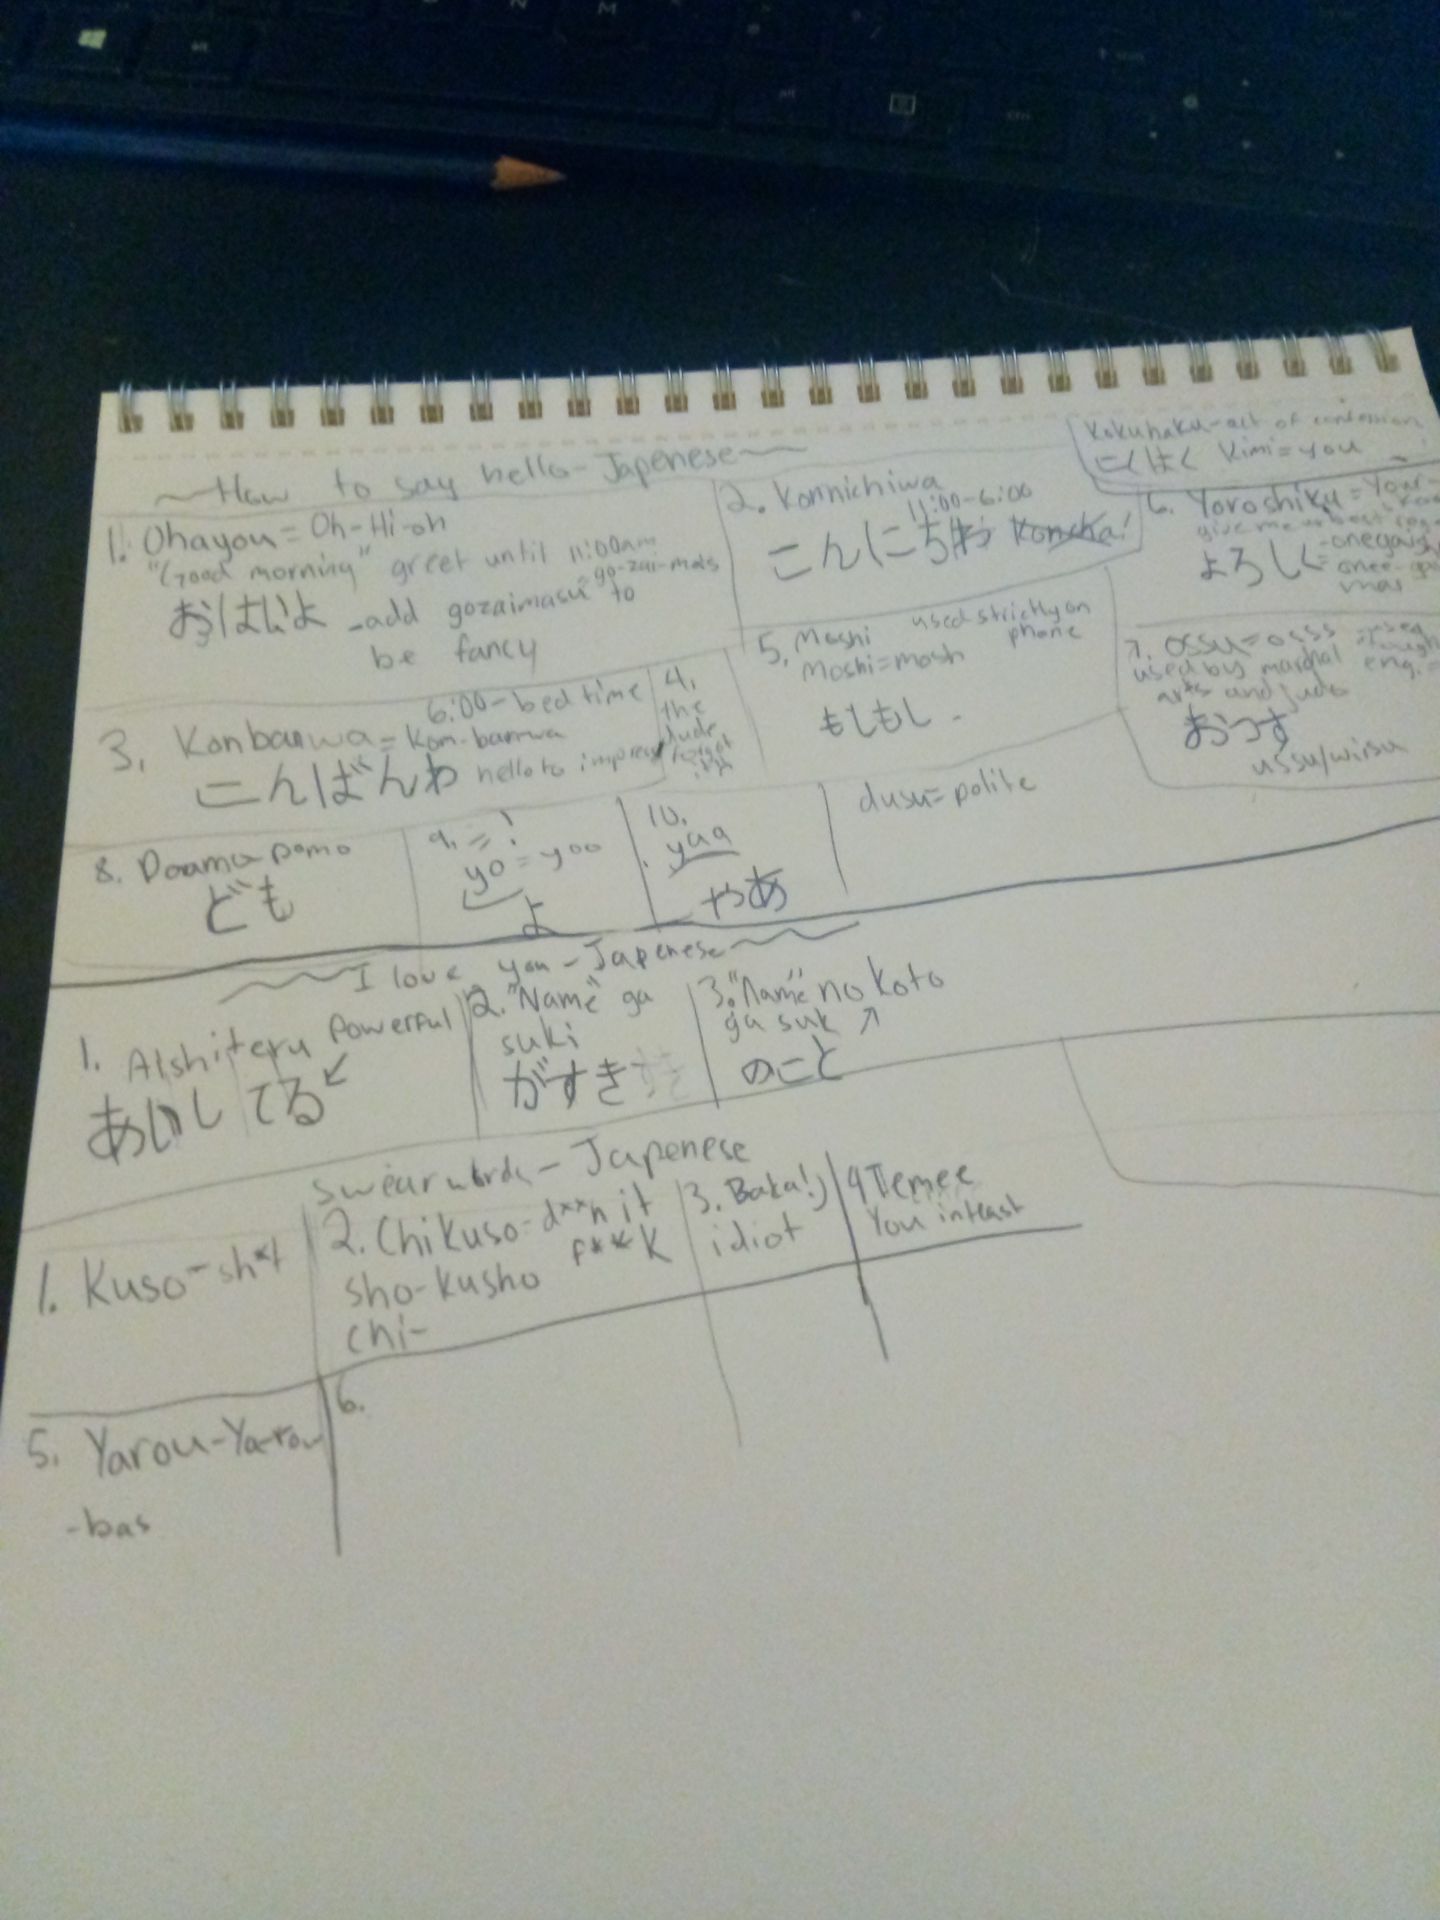 ~How to say hello-Japenese~
Kokuhaku-act of confession
こくはく Kimi=you
1. Ohayou=Oh-Hi-oh
"Good morning" greet until 11:00am
-add gozaimasu to
go-zai-mas
be fancy
2. Konnichiwa
11:00-6:00
こんにち
6. Yoroshiku=Your-
give me
よろしく
3. Konbanwa=Kon-banwa
6:00-bed time
こんばんわ hello to impress
4.
the
dude
forgot
5. Moshi used strictly on
Moshi=mosh phone
もしもし
7. Ossu=osss
used by marshal
arts and judo
おっす
ussu/wissu
8. Doamo-pomo
ども
9. =!
yo=yoo
よ
10.
yaa
やあ
dusu=polite
~I love you-Japenese~
1. AIshiteru Powerful
あいしてる
2. "Name" ga
suki
がすき
3. "Name" no koto
ga suk
のこと
swear words-Japenese
1. Kuso-sh*t
2. Chikuso-d**n it
f**k
sho-kusho
chi-
3. Baka!
idiot
4 Temee
You inteast
5. Yarou-Ya-rou
-bas
6.